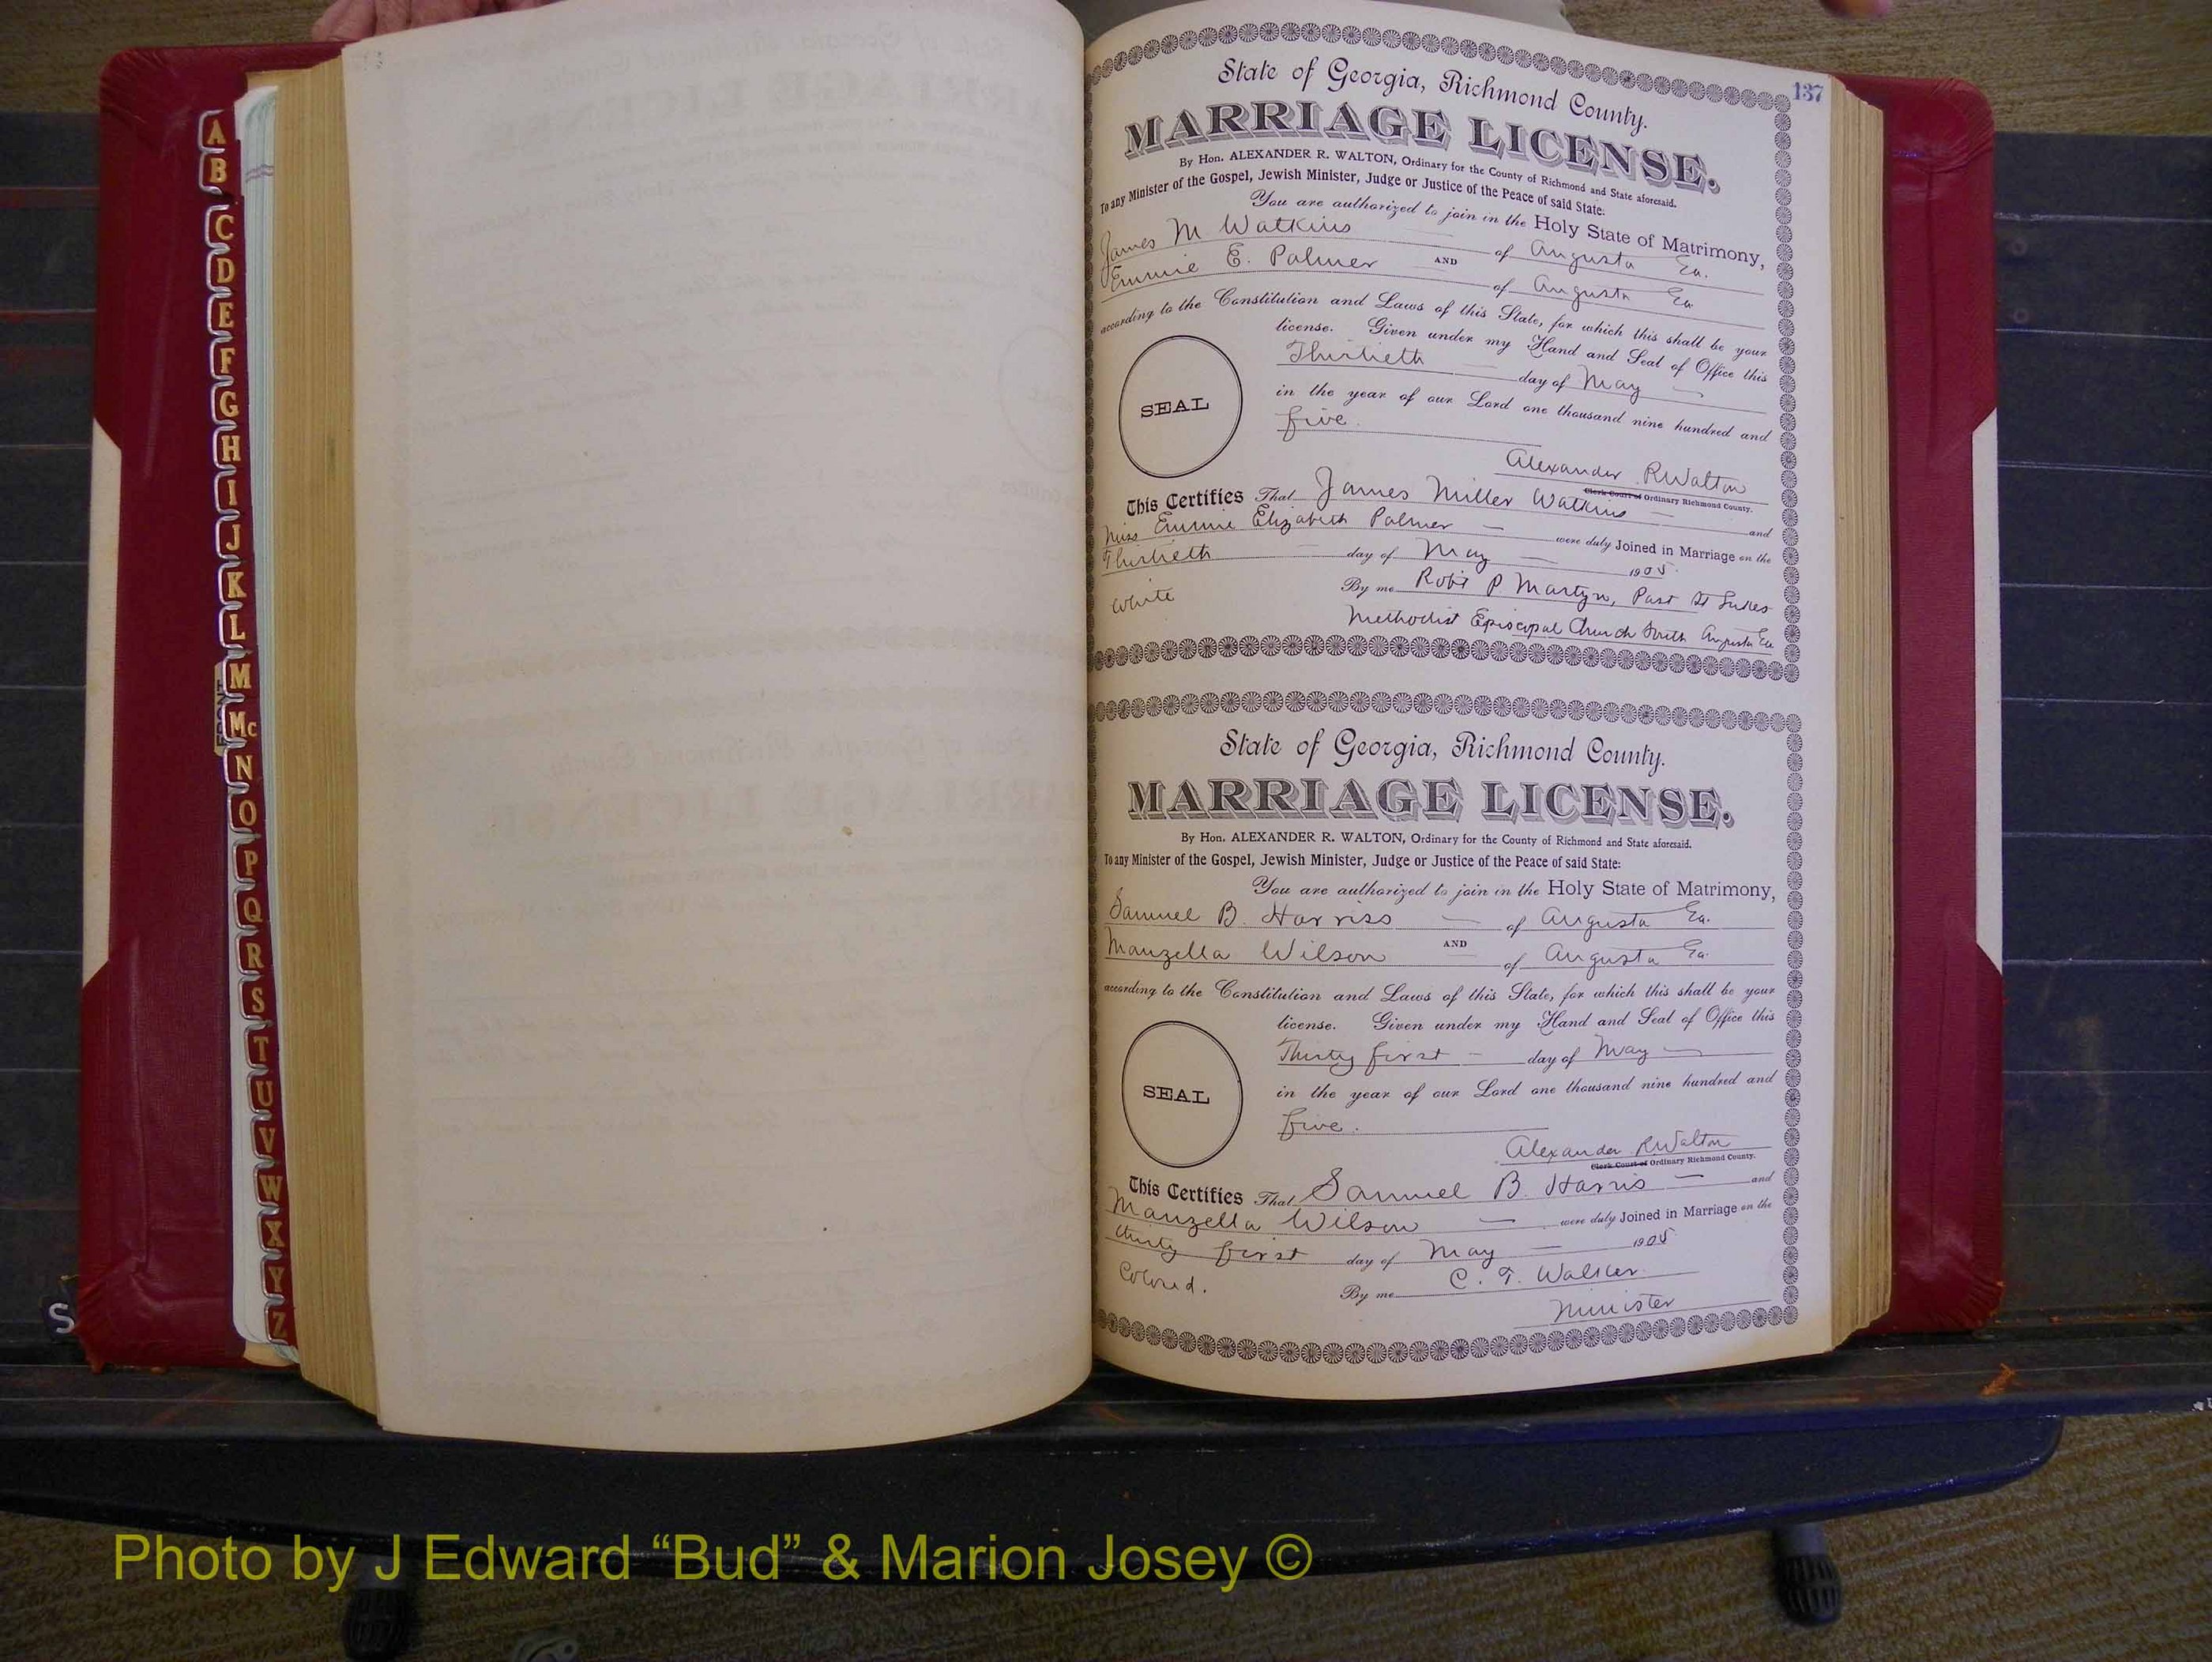 A
B
C
D
E
F
G
H
I
J
K
L
M
Mc
N
O
P
Q
R
S
T
U
V
W
X
Y
Z
137
State of Georgia, Richmond County.
MARRIAGE LICENSE.
By Hon. ALEXANDER R. WALTON, Ordinary for the County of Richmond and State aforesaid.
To any Minister of the Gospel, Jewish Minister, Judge or Justice of the Peace of said State:
You are authorized to join in the Holy State of Matrimony,
James M Watkins of Augusta Ga.
AND
Emmie E. Palmer of Augusta Ga
according to the Constitution and Laws of this State, for which this shall be your
license. Given under my Hand and Seal of Office this
Thirtieth day of May
in the year of our Lord one thousand nine hundred and
five.
SEAL
Alexander R Walton
Clerk Court of Ordinary Richmond County.
This Certifies That James Miller Watkins and
Miss Emmie Elizabeth Palmer were duly Joined in Marriage on the
Thirtieth day of May 1905.
White By me Robt P. Martyn, Past St Lukes
Methodist Episcopal Church South Augusta Ga
State of Georgia, Richmond County.
MARRIAGE LICENSE.
By Hon. ALEXANDER R. WALTON, Ordinary for the County of Richmond and State aforesaid.
To any Minister of the Gospel, Jewish Minister, Judge or Justice of the Peace of said State:
You are authorized to join in the Holy State of Matrimony,
Samuel B. Harriss of Augusta Ga.
AND
Manzella Wilson of Augusta Ga.
according to the Constitution and Laws of this State, for which this shall be your
license. Given under my Hand and Seal of Office this
Thirty first day of May
in the year of our Lord one thousand nine hundred and
five.
SEAL
Alexander R Walton
Clerk Court of Ordinary Richmond County.
This Certifies That Samuel B. Harris and
Manzella Wilson were duly Joined in Marriage on the
thirty first day of May 1905
Colored. By me C. T. Walker
Minister
Photo by J Edward “Bud” & Marion Josey ©